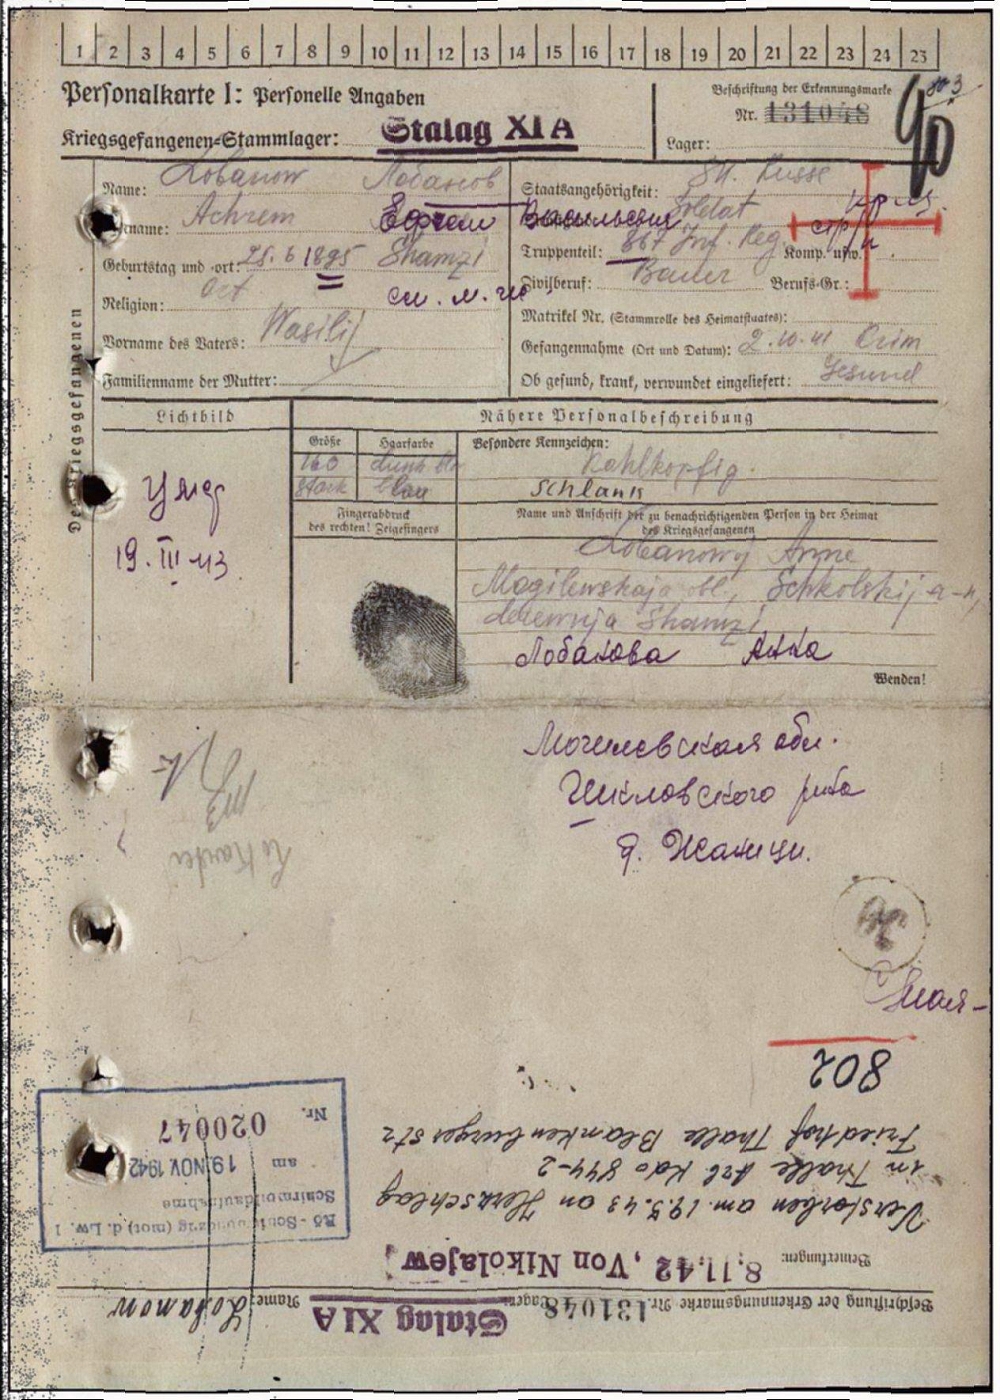 1 2 3 4 5 6 7 8 9 10 11 12 13 14 15 16 17 18 19 20 21 22 23 24 25
Personalkarte I: Personelle Angaben
Beschriftung der Erkennungsmarke
Nr. 131048
Kriegsgefangenen-Stammlager: Stalag XI A
Lager:
Des Kriegsgefangenen
Name: Lobanow Лобанов
Staatsangehörigkeit: Russe
name: Achrem Ефрем Васильевич
Soldat
Geburtstag und -ort: 25.6 1895 Shamzi
Truppenteil: 867 Inf. Reg. Komp. usw.:
Religion: Ort
Zivilberuf: Bauer Berufs-Gr.:
Matrikel Nr. (Stammrolle des Heimatstaates):
Vorname des Vaters: Wasilij
Gefangennahme (Ort und Datum): 2.10.41 Krim
Familienname der Mutter:
Ob gesund, krank, verwundet eingeliefert: Gesund
Lichtbild
Nähere Personalbeschreibung
Größe Haarfarbe Besondere Kennzeichen:
160 Kahlkopfig
stark blau schlank
Fingerabdruck
des rechten! Zeigefingers
Name und Anschrift der zu benachrichtigenden Person in der Heimat
des Kriegsgefangenen
умер
19.III 43
Lobanowy Anne
Mogilewskaja obl., Schkolskij r-n,
derewnja Shamzi
Лобанова Анна
Wenden!
Могилевская обл.
Шкловского р-на
д. Жамци.
802
Friedhof Thale Blankenburger Str
in Thale Arb Kdo 544-2
Verstorben am 19.3.43 an Herzschlag
Bemerkungen: 8.11.42, Von Nikolajew
Nr. 020047
am 19. NOV. 1942
(mot) d. Lw. 1
Beschriftung der Erkennungsmarke Nr. 131048 Lager: Stalag XI A
Name: Lobanow